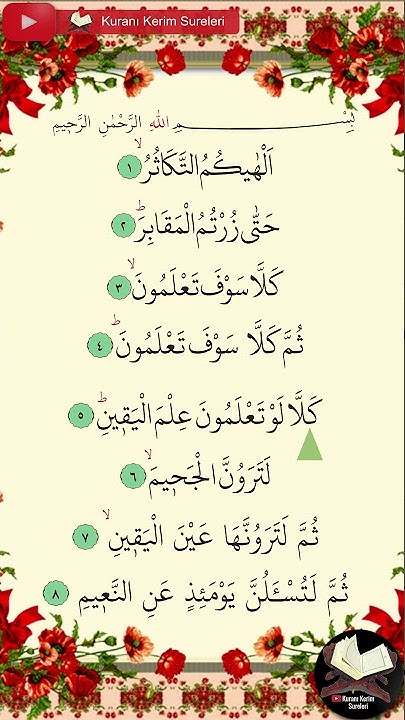 Kuranı Kerim Sureleri
بِسْمِ اللهِ الرَّحْمٰنِ الرَّحٖيمِ
اَلْهٰيكُمُ التَّكَاثُرُۙ ١
حَتّٰى زُرْتُمُ الْمَقَابِرَۜ ٢
كَلَّا سَوْفَ تَعْلَمُونَۙ ٣
ثُمَّ كَلَّا سَوْفَ تَعْلَمُونَۜ ٤
كَلَّا لَوْ تَعْلَمُونَ عِلْمَ الْيَقٖينِۜ ٥
لَتَرَوُنَّ الْجَحٖيمَۙ ٦
ثُمَّ لَتَرَوُنَّهَا عَيْنَ الْيَقٖينِۙ ٧
ثُمَّ لَتُسْـَٔلُنَّ يَوْمَئِذٍ عَنِ النَّعٖيمِ ٨
Kuranı Kerim
Sureleri